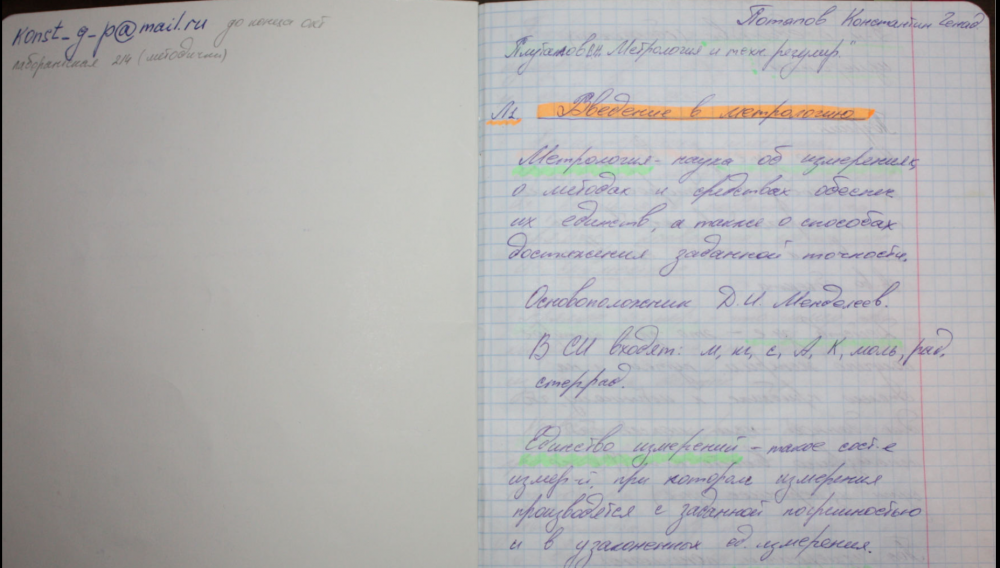 Konst_g_p@mail.ru до конца окт
лаборанская 214 (методички)
Потапов Константин Генад
"Метрология и техн. регулир."
Л1 Введение в метрологию
Метрология - наука об измерениях
о методах и средствах обеспеч
их единств, а также о способах
достижения заданной точности.
Основоположник Д.И. Менделеев.
В СИ входят: м, кг, с, А, К, моль, рад,
стеррад.
Единство измерений - такое сост-е
измер-й, при котором измерения
производятся с заданной погрешностью
и в узаконенных ед. измерения.